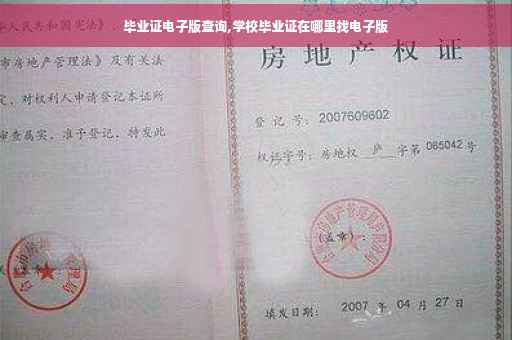 毕业证电子版查询,学校毕业证在哪里找电子版
人民共和国宪法》、
市房地产管理法》及有关法
定，对权利人申请登记本证所
审查属实，准予登记，特发此
房地产权证
登记号：2007609602
权证字号：房地权 庐 字第 085042 号
(盖章)：
填发日期： 2007 年 04 月 27 日